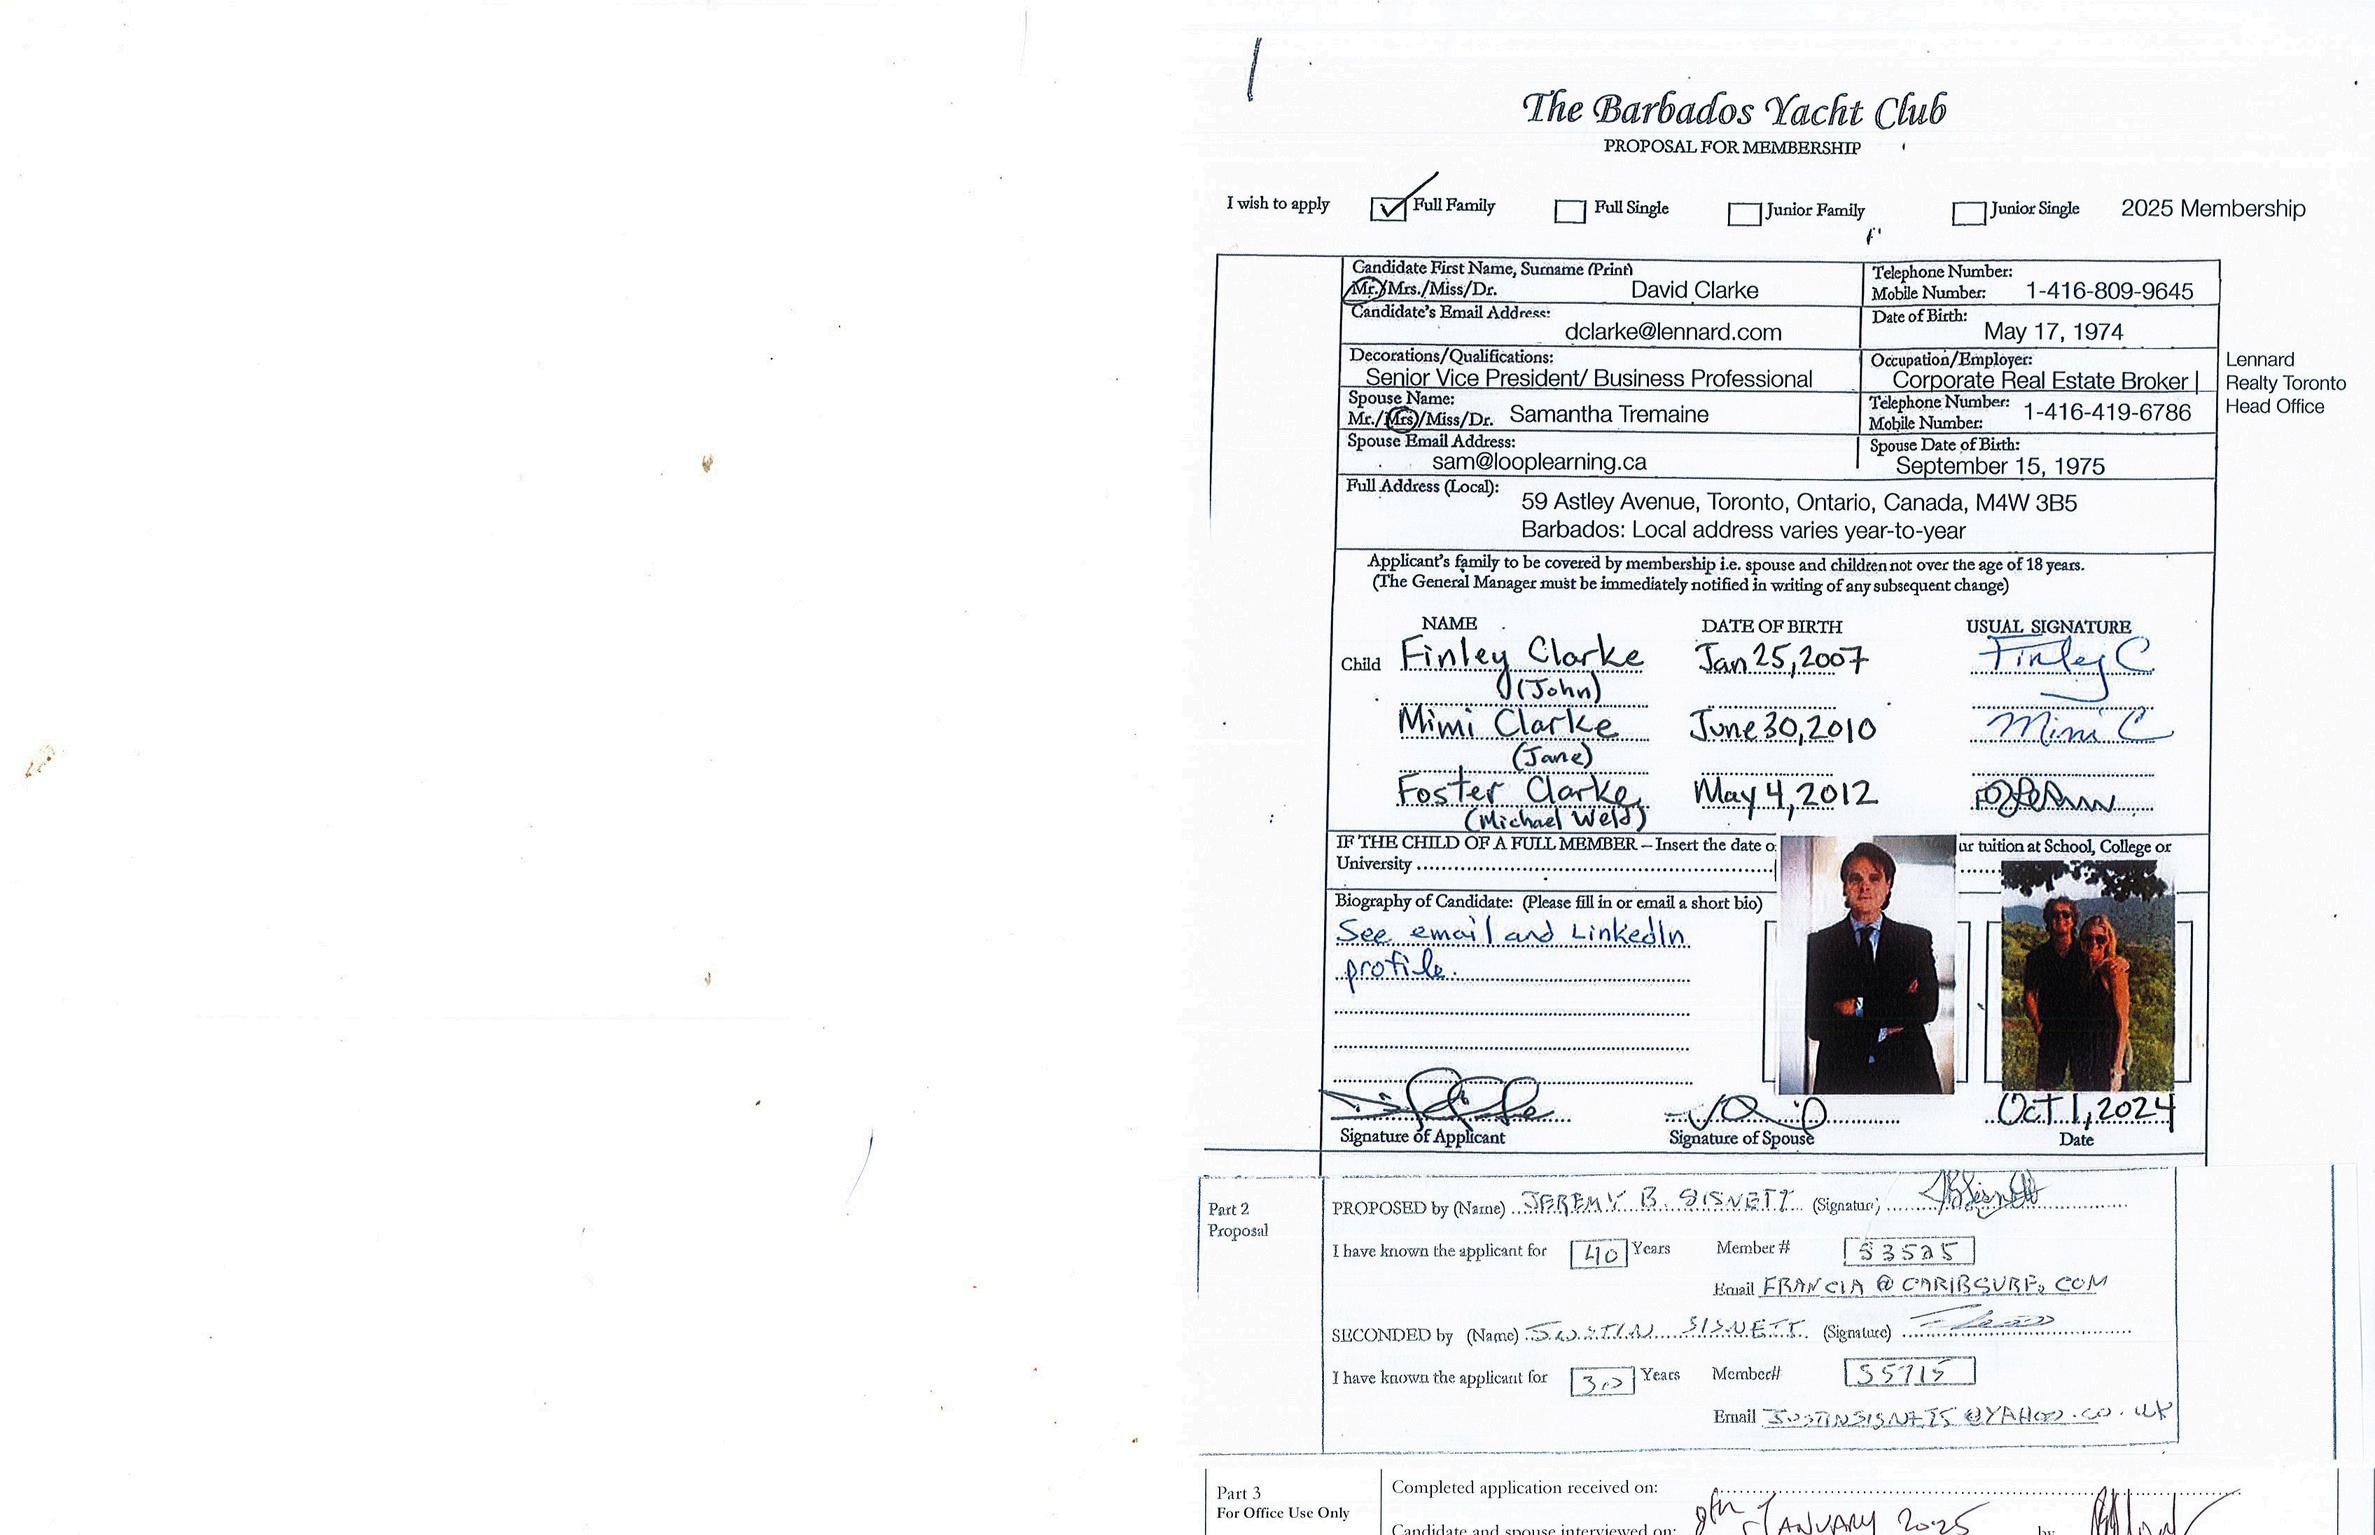 The Barbados Yacht Club
PROPOSAL FOR MEMBERSHIP
I wish to apply Full Family Full Single Junior Family Junior Single 2025 Membership
Candidate First Name, Surname (Print)
Mr./Mrs./Miss/Dr. David Clarke
Telephone Number:
Mobile Number: 1-416-809-9645
Candidate's Email Address:
dclarke@lennard.com
Date of Birth:
May 17, 1974
Decorations/Qualifications:
Senior Vice President/ Business Professional
Occupation/Employer:
Corporate Real Estate Broker |
Lennard
Realty Toronto
Head Office
Spouse Name:
Mr./Mrs/Miss/Dr. Samantha Tremaine
Telephone Number:
Mobile Number: 1-416-419-6786
Spouse Email Address:
sam@looplearning.ca
Spouse Date of Birth:
September 15, 1975
Full Address (Local):
59 Astley Avenue, Toronto, Ontario, Canada, M4W 3B5
Barbados: Local address varies year-to-year
Applicant's family to be covered by membership i.e. spouse and children not over the age of 18 years.
(The General Manager must be immediately notified in writing of any subsequent change)
NAME DATE OF BIRTH USUAL SIGNATURE
Child Finley Clarke Jan 25, 2007 Finley C
(John)
Mimi Clarke June 30, 2010 Mimi C
(Jane)
Foster Clarke May 4, 2012
(Michael Weld)
IF THE CHILD OF A FULL MEMBER – Insert the date o ur tuition at School, College or
University
Biography of Candidate: (Please fill in or email a short bio)
See email and LinkedIn
profile.
Oct 1, 2024
Signature of Applicant Signature of Spouse Date
Part 2
Proposal
PROPOSED by (Name) JEREMY B. SISNETT (Signature)
I have known the applicant for 40 Years Member # S3525
Email FRANCIA @ CARIBSURF. COM
SECONDED by (Name) JUSTIN SISNETT (Signature)
I have known the applicant for 30 Years Member# S5715
Email JUSTINSISNETT@YAHOO.CO.UK
Part 3
For Office Use Only
Completed application received on:
Candidate and spouse interviewed on: 9th JANUARY 2025 by